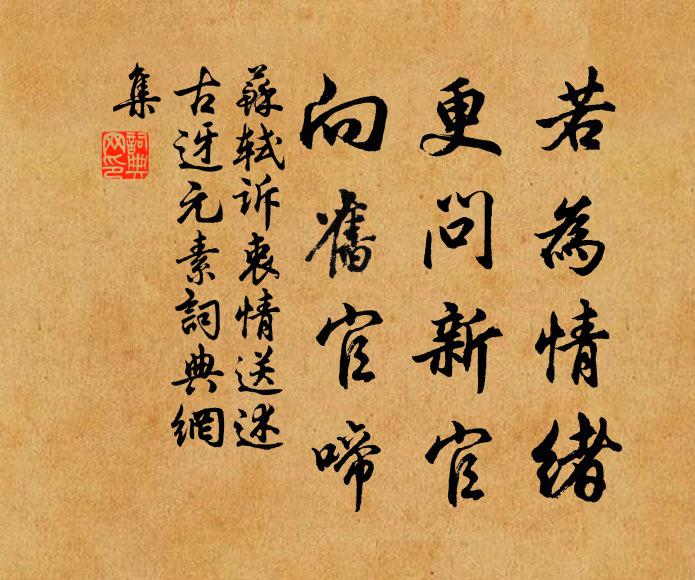 若為情緒
更問新官
向舊官啼
蘇軾訴衷情送述
古迓元素詞典網
集
詞典
网印